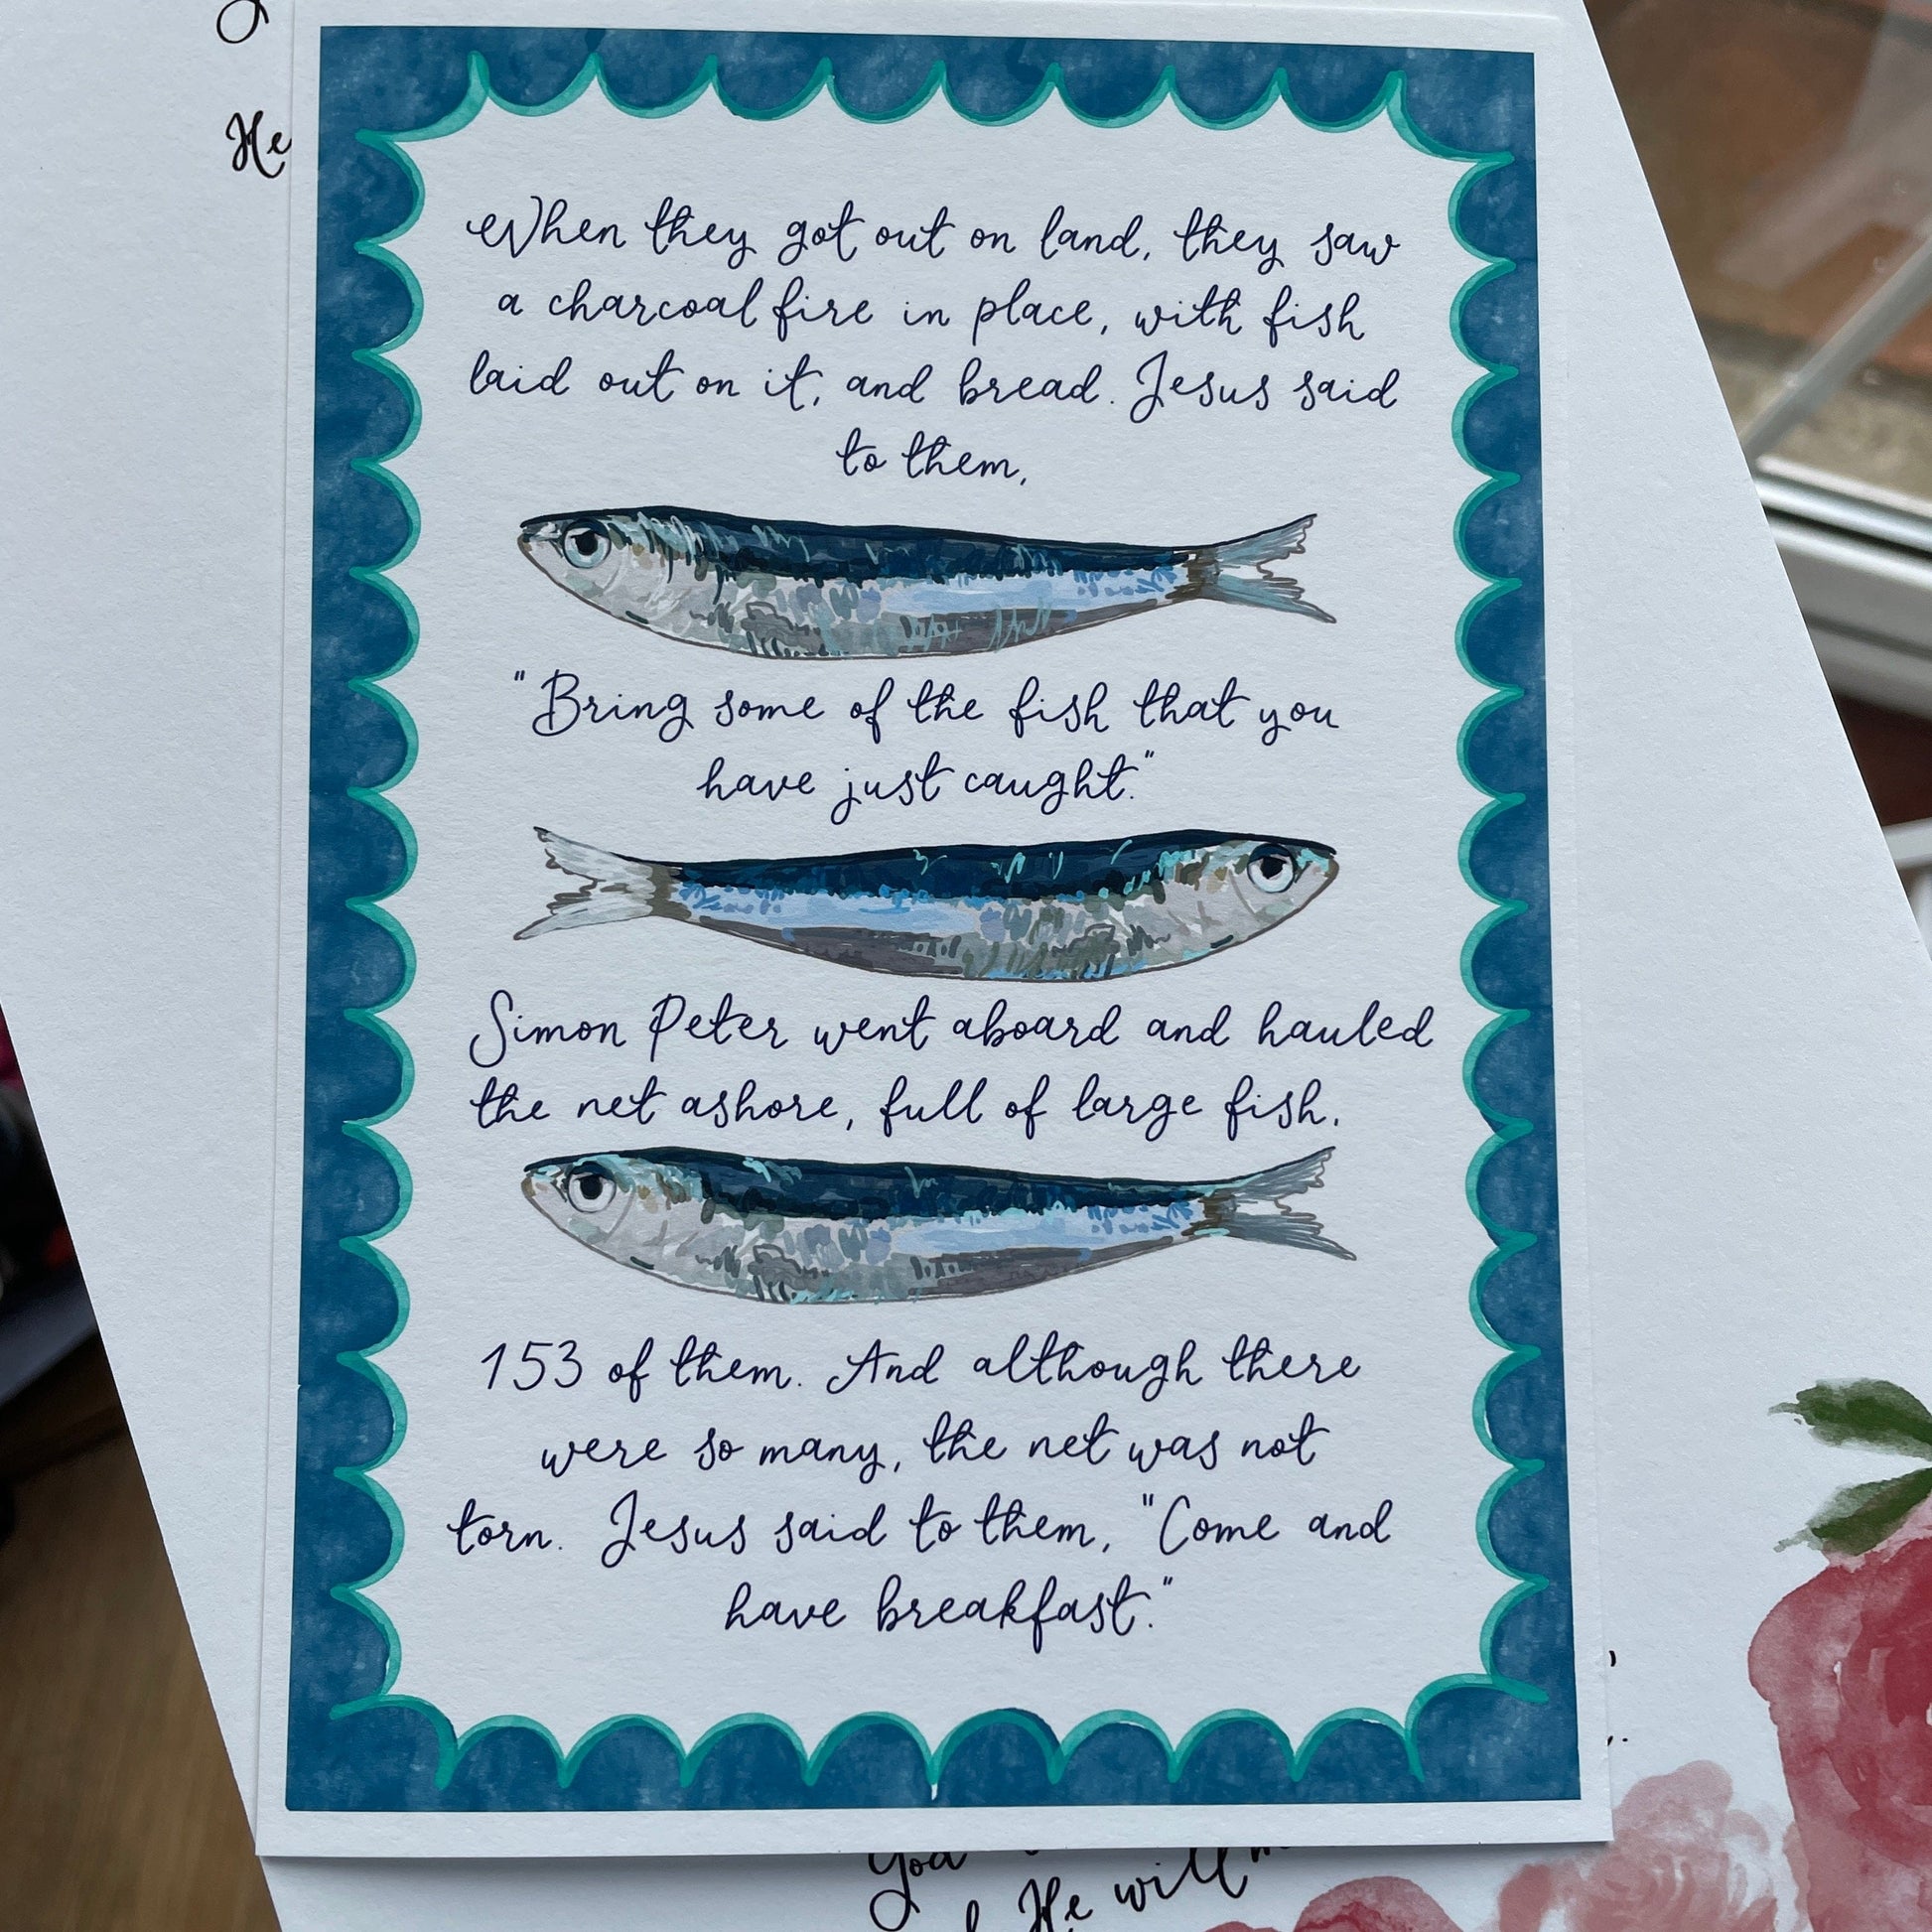 He
When they got out on land, they saw
a charcoal fire in place, with fish
laid out on it, and bread. Jesus said
to them,
"Bring some of the fish that you
have just caught."
Simon Peter went aboard and hauled
the net ashore, full of large fish,
153 of them. And although there
were so many, the net was not
torn. Jesus said to them, "Come and
have breakfast."
God
He will